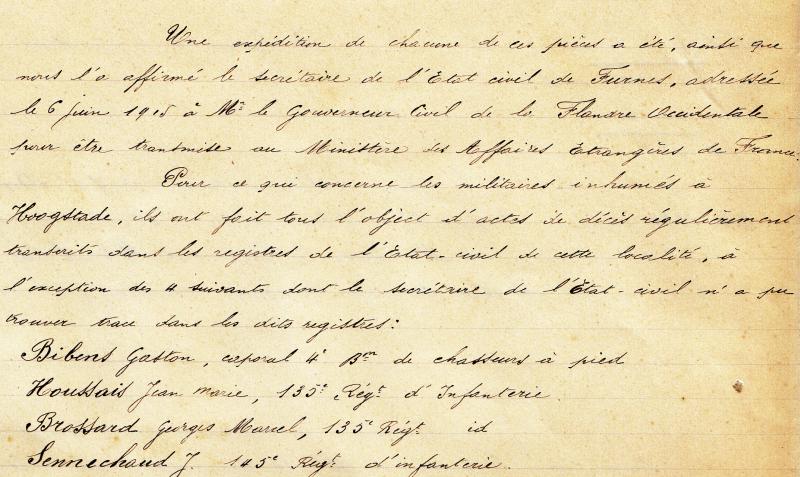 Une expédition de chacune de ces pièces a été, ainsi que
nous l'a affirmé le secrétaire de l'Etat civil de Furnes, adressée
le 6 juin 1915 à Mr le Gouverneur Civil de la Flandre Occidentale
pour être transmise au Ministère des Affaires Etrangères de France.
Pour ce qui concerne les militaires inhumés à
Hoogstade, ils ont fait tous l'object d'actes de décès régulièrement
transcrits dans les registres de l'Etat-civil de cette localité, à
l'exception des 4 suivants dont le secrétaire de l'Etat-civil n'a pu
trouver trace dans les dits registres:
Bibens Gaston, caporal 4e Bon de chasseurs à pied
Houssais Jean Marie, 135e Régt d'Infanterie.
Brossard Georges Marcel, 135e Régt id
Sennechaud J. 145e Régt d'infanterie.